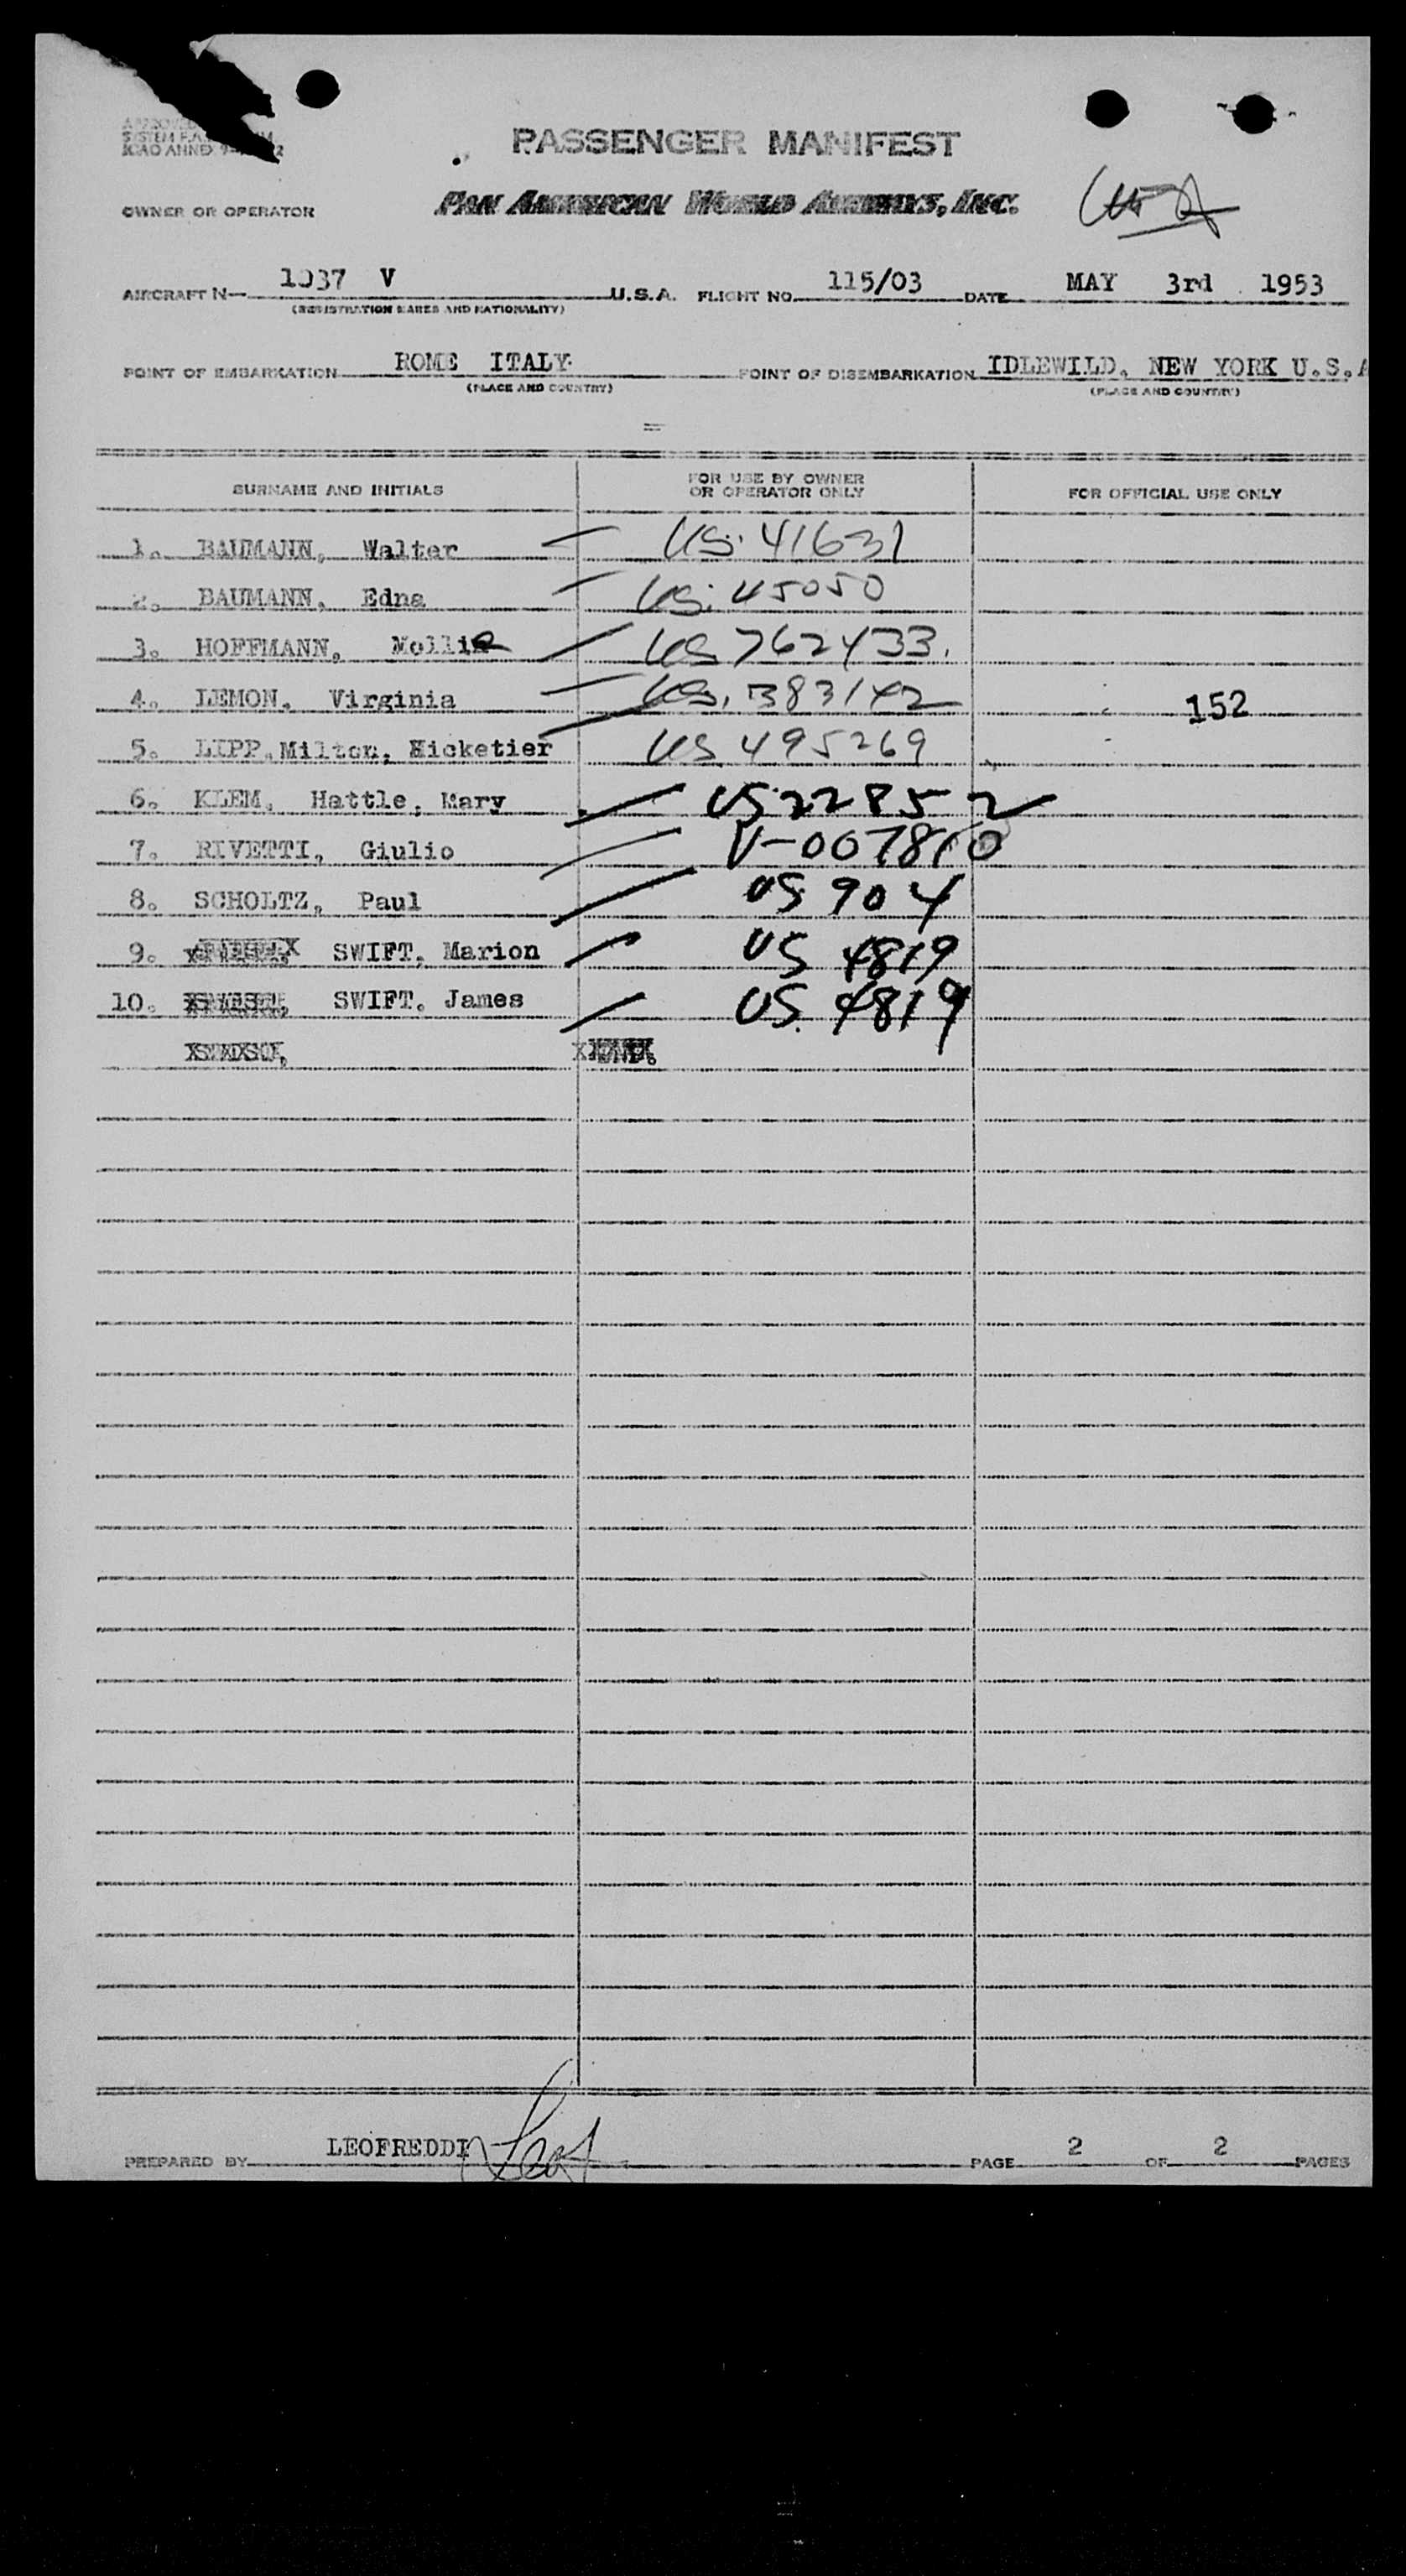 PASSENGER MANIFEST
OWNER OR OPERATOR PAN AMERICAN WORLD AIRWAYS, INC.
AIRCRAFT N— 1037 V U.S.A. FLIGHT NO. 115/03 DATE MAY 3rd 1953
(REGISTRATION MARKS AND NATIONALITY)
POINT OF EMBARKATION ROME ITALY POINT OF DISEMBARKATION IDLEWILD, NEW YORK U.S.A
(PLACE AND COUNTRY) (PLACE AND COUNTRY)
SURNAME AND INITIALS FOR USE BY OWNER OR OPERATOR ONLY FOR OFFICIAL USE ONLY
1. BAUMANN, Walter US. 41631
2. BAUMANN, Edna US. 45050
3. HOFFMANN, Mollie US 762433.
4. LEMON, Virginia US. 383142 152
5. LIPP, Milton, Hicketier US 495269
6. KLEM, Hattle, Mary US 22852
7. RIVETTI, Giulio V-007810
8. SCHOLTZ, Paul US 904
9. SWIFT, Marion US 4819
10. SWIFT, James US. 4819
PREPARED BY LEOFREDDI PAGE 2 OF 2 PAGES